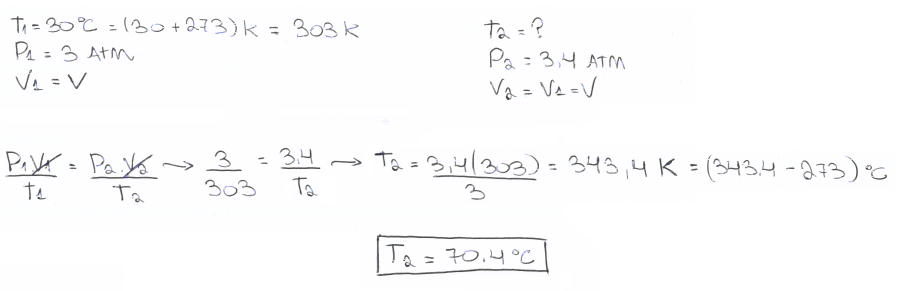 T1 = 30°C = (30 + 273) K = 303 K
P1 = 3 ATM
V1 = V
T2 = ?
P2 = 3,4 ATM
V2 = V1 = V
P1.V1/T1 = P2.V2/T2 → 3/303 = 3.4/T2 → T2 = 3,4(303)/3 = 343,4 K = (343.4 - 273) °C
T2 = 70.4 °C